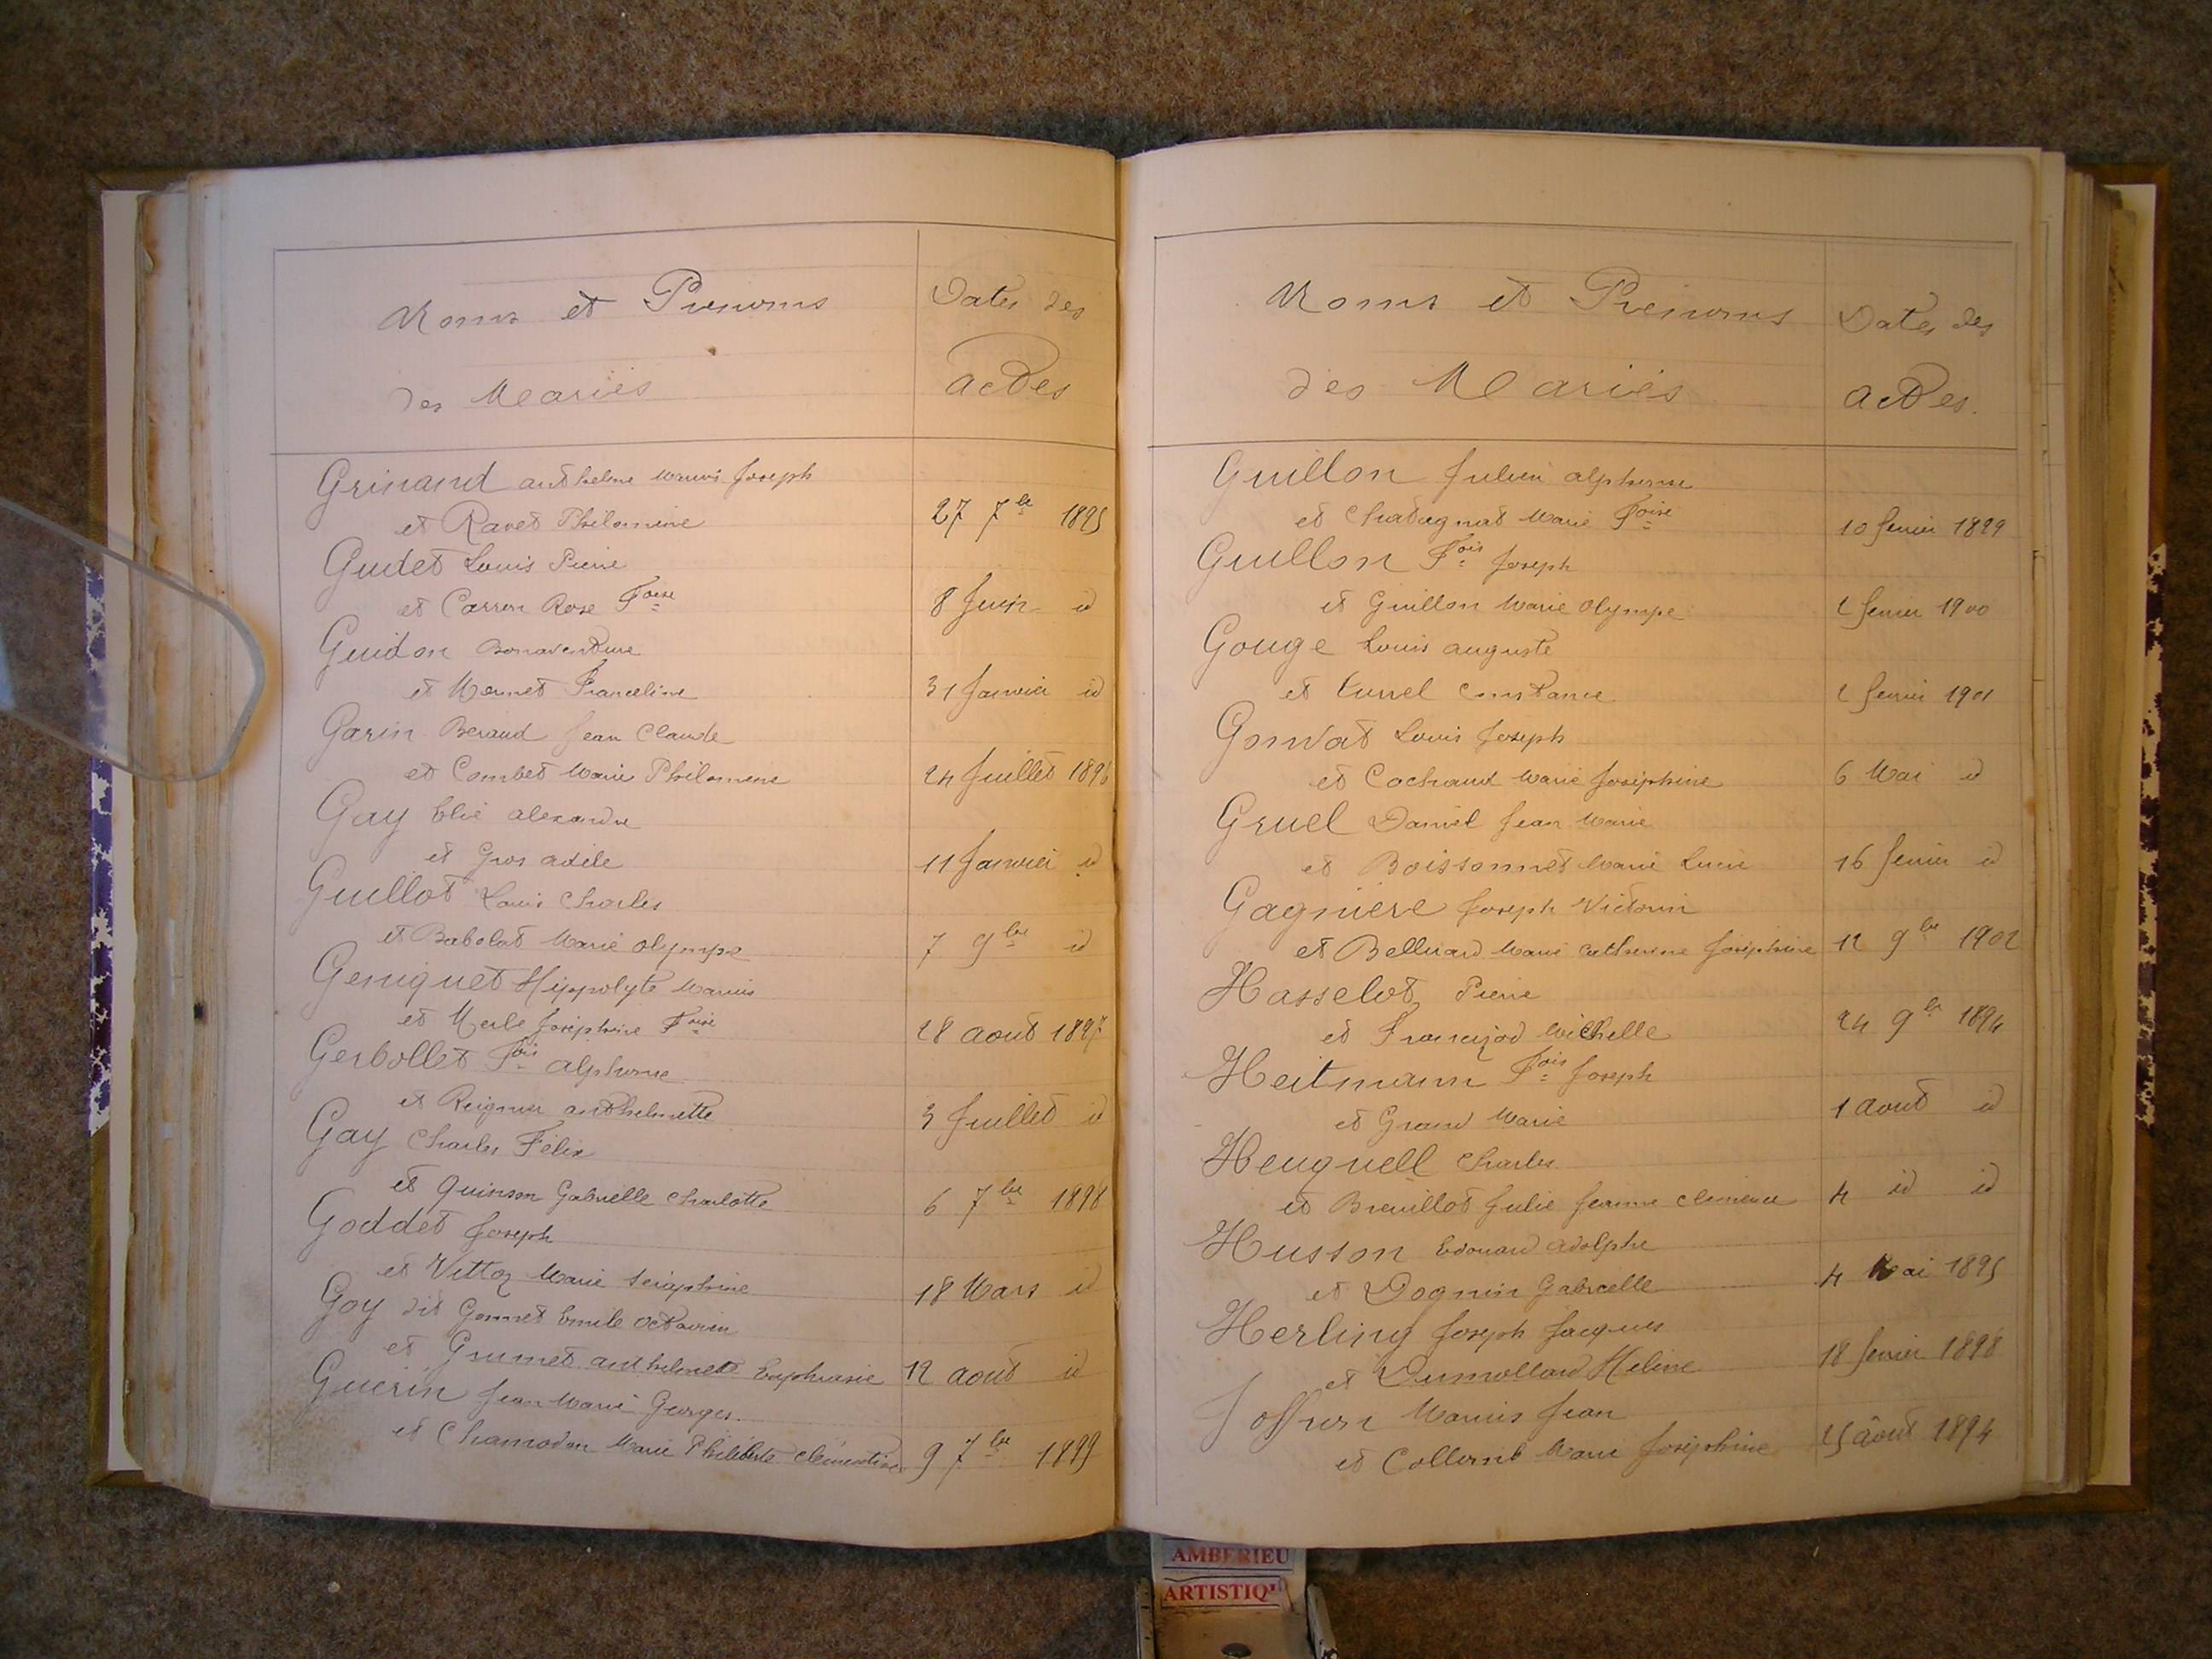 Noms et Prenoms
Dates des
des Mariés
actes
Grinand anthelme Marius Joseph
et Ravet Philomine 27 7bre 1895
Gudet Louis Pierre
et Carron Rose Foise 8 Juin id
Guidon Bonaventure
et Monnet Franceline 31 Janvier id
Garin Beraud Jean Claude
et Combet Marie Philomene 24 Juillet 1896
Gay Elie alexandre
et Gros adèle 11 Janvier id
Guillot Louis Charles
et Babolat Marie olympe 7 9bre id
Geniquet Hippolyte Marius
et Merle Josephine Foise 28 aout 1897
Gerbollet Fois alphonse
et Reignier anthelmette 3 Juillet id
Gay Charles Félix
et Quinson Gabrielle Charlotte 6 7bre 1898
Goddet Joseph
et Vittoz Marie Séraphine 18 Mars id
Goy dit Gonnet Emile octavien
et Grumet anthelmete Euphrasie 12 aout id
Guérin Jean Marie Georges
et Chamodon Marie Philiberte clémentine 9 7bre 1899
Noms et Prénoms
Dates des
des Mariés
actes.
Guillon Julien alphonse
et Chatagnat Marie Foise 10 fevrier 1899
Guillon Fois Joseph
et Guillon Marie olympe 2 fevrier 1900
Gouge Louis auguste
et Currel Constance 2 fevrier 1901
Louis Joseph
et Cochand Marie Joséphine 6 Mai id
Gruel Daniel Jean Marie
et Boissonnet Marie Lucie 16 fevrier id
Gagnière Joseph Victorin
et Belluard Marie catherine Joséphine 12 9bre 1902
Hasselot Pierre
et Michelle 24 9bre 1894
Heitmann Fois Joseph
et Grand Marie 1 aout id
Heuguell Charles
et Breuillot Julie Jeanne clémence 4 id id
Husson Edouard adolphe
et Dognin Gabrielle 4 Mai 1895
Herling Joseph Jacques
et Dumollard Hélène 18 fevrier 1898
Joffron Marius Jean
et Collomb Marie Joséphine 25 août 1894
AMBERIEU
ARTISTIQ